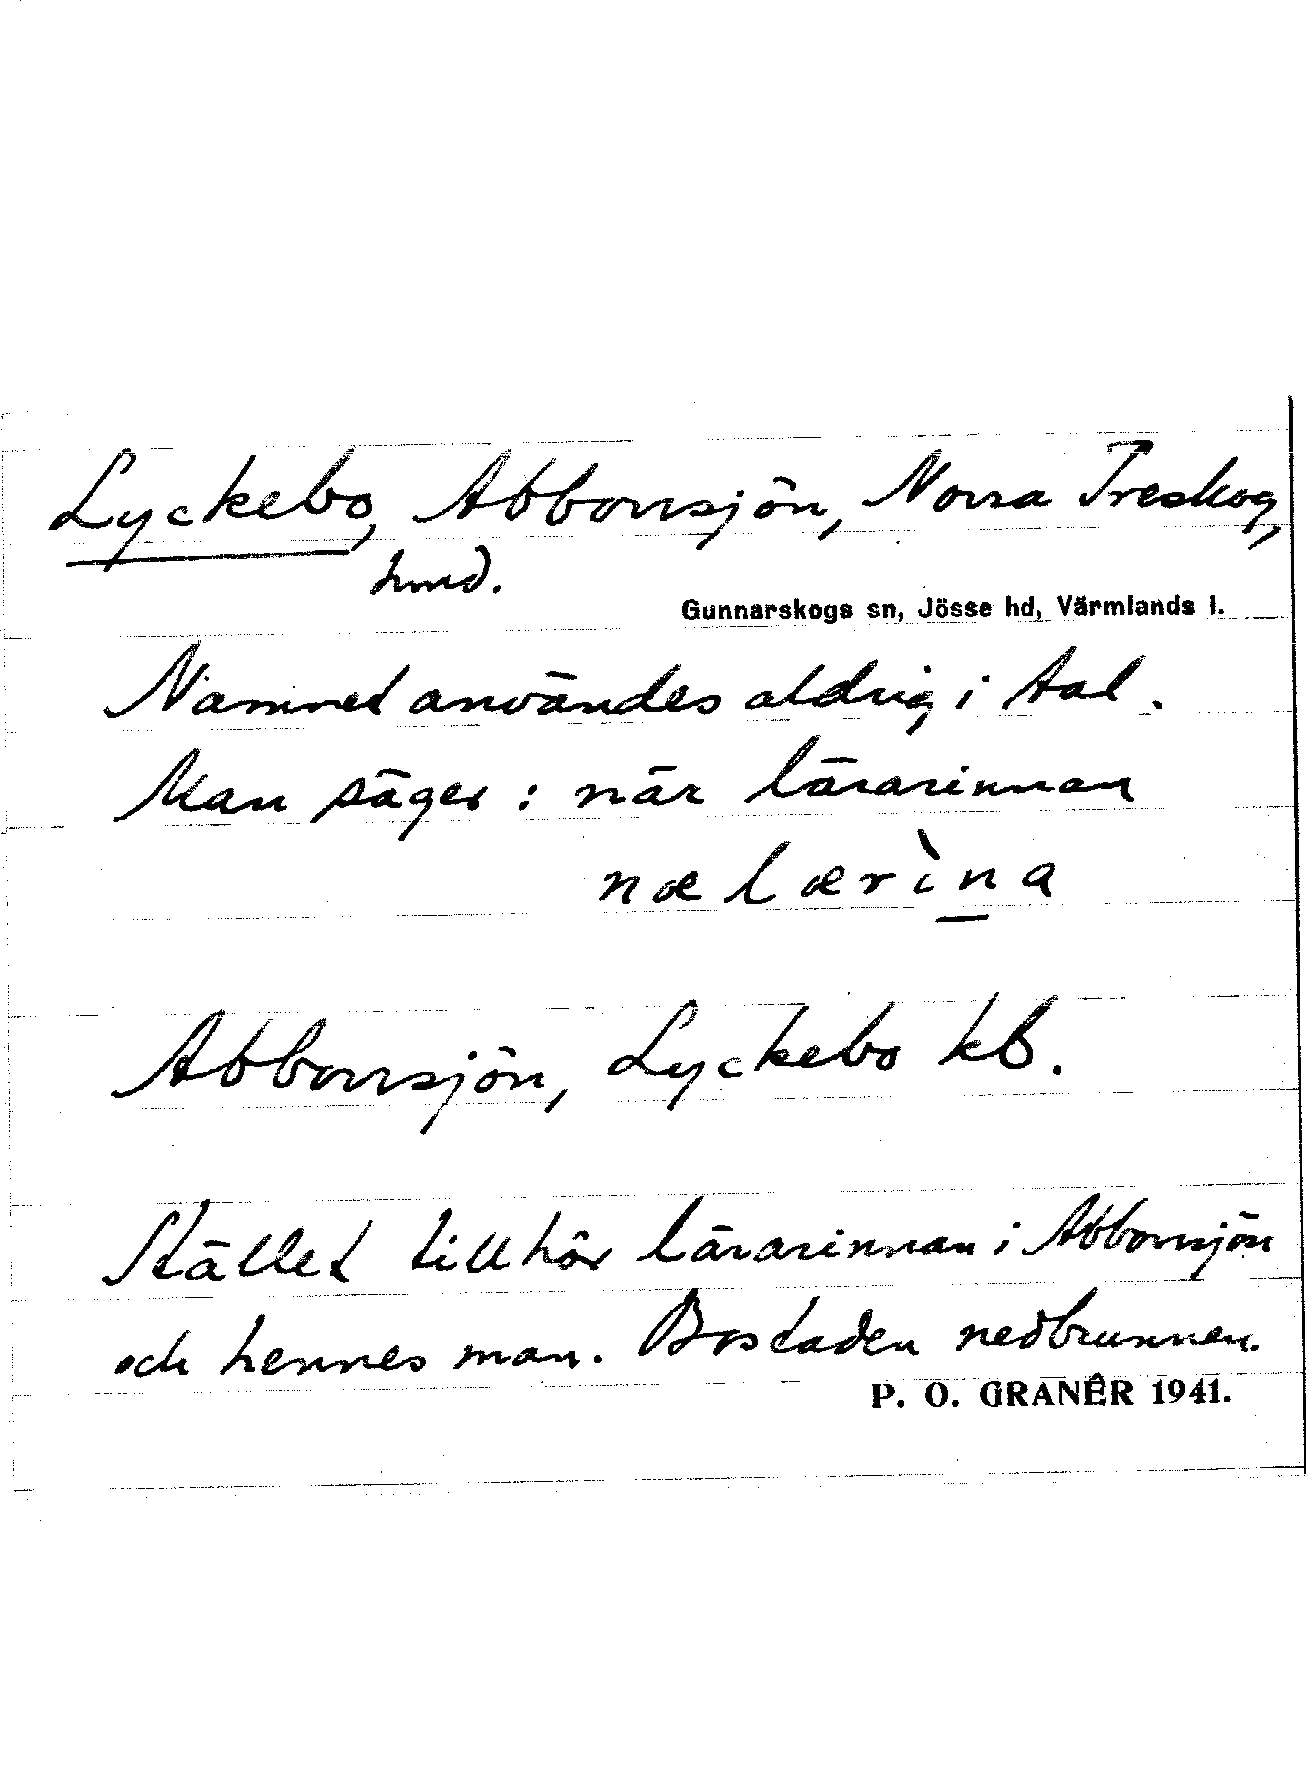 Lyckebo, Abborrsjön, Norra Treskog,
hmd.
Gunnarskogs sn, Jösse hd, Värmlands l.
Namnet användes aldrig i tal.
Man säger: när lärarinnan
næ lærìna
Abborrsjön, Lyckebo kb.
Stället tillhör lärarinnan i Abborrsjön
och hennes man. Bostaden nedbrunnen.
P. O. GRANÊR 1941.